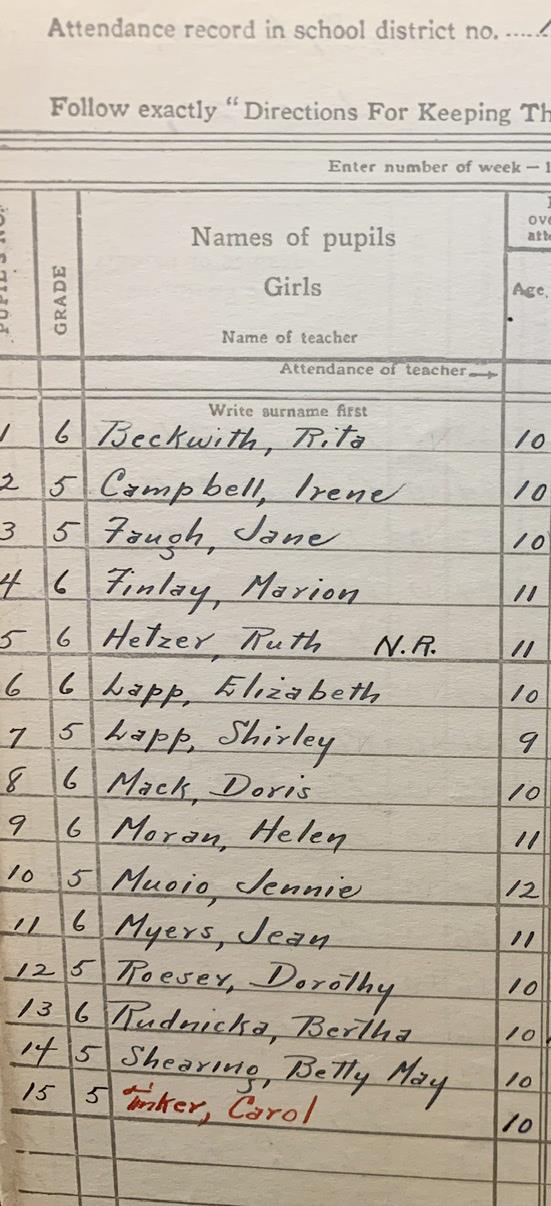 Attendance record in school district no. .....
Follow exactly "Directions For Keeping Th
Enter number of week — 1
PUPIL'S NO.
GRADE
Names of pupils
Girls
Name of teacher
Attendance of teacher
ove
att
Age,
Write surname first
1 6 Beckwith, Rita 10
2 5 Campbell, Irene 10
3 5 Faugh, Jane 10
4 6 Finlay, Marion 11
5 6 Hetzer, Ruth N.R. 11
6 6 Lapp, Elizabeth 10
7 5 Lapp, Shirley 9
8 6 Mack, Doris 10
9 6 Moran, Helen 11
10 5 Muoio, Jennie 12
11 6 Myers, Jean 11
12 5 Roeser, Dorothy 10
13 6 Rudnicka, Bertha 10
14 5 Shearing, Betty May 10
15 5 Tinker, Carol 10